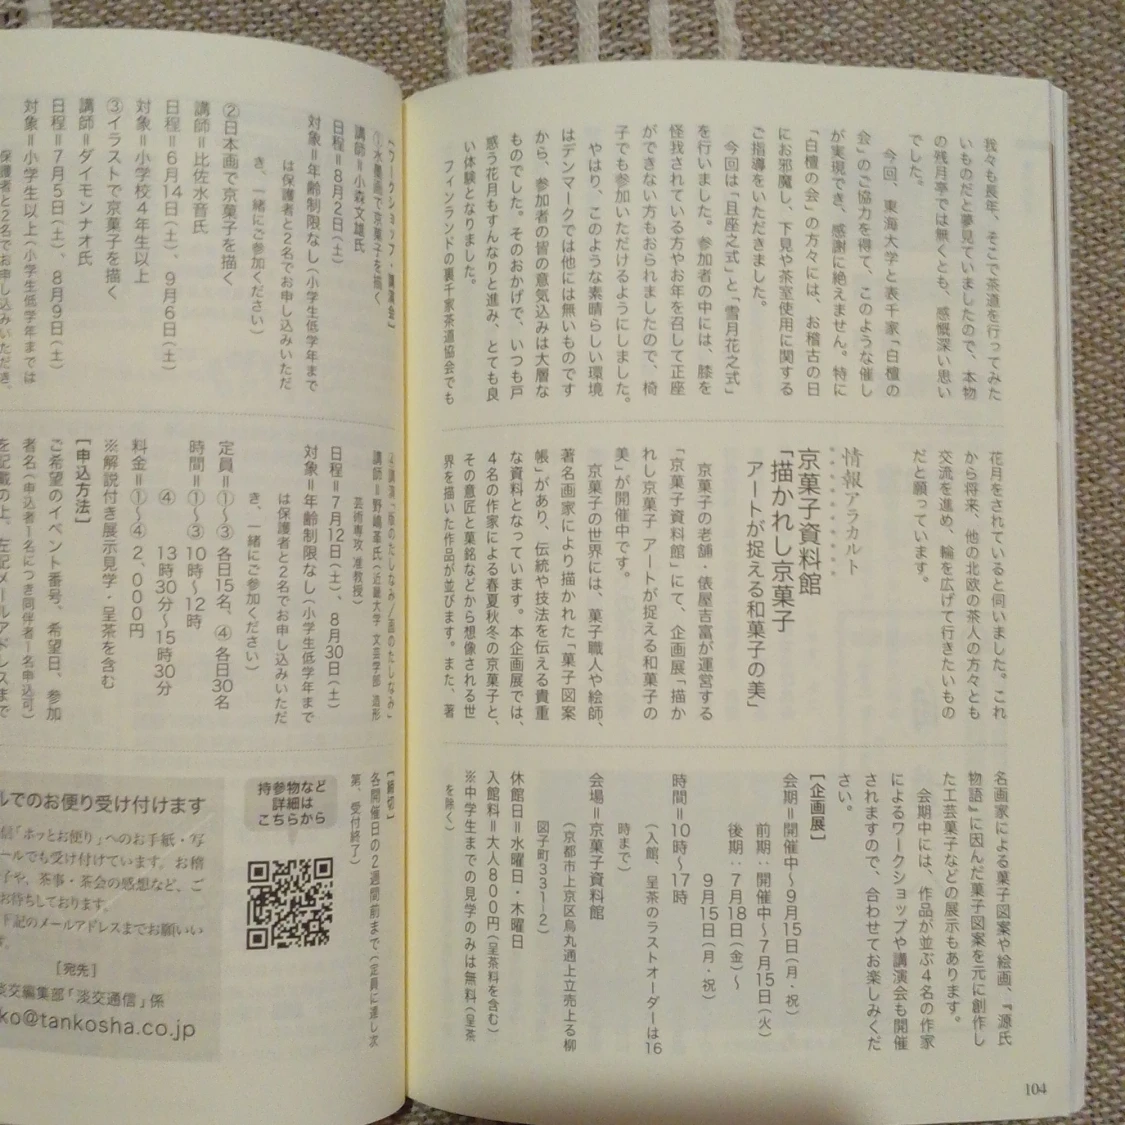 我々も長年、そこで茶道を行ってみた
いものだと夢見ていましたので、本物
の残月亭では無くとも、感慨深い思い
でした。
今回、東海大学と表千家「白檀の
会」のご協力を得て、このような催し
が実現でき、感謝に絶えません。特に
「白檀の会」の方々には、お稽古の日
にお邪魔し、下見や茶室使用に関する
ご指導をいただきました。
今回は「且座之式」と「雪月花之式」
を行いました。参加者の中には、膝を
怪我されている方やお年を召して正座
ができない方もおられましたので、椅
子でも参加いただけるようにしました。
やはり、このような素晴らしい環境
はデンマークでは他には無いものです
から、参加者の皆の意気込みは大層な
ものでした。そのおかげで、いつも戸
惑う花月もすんなりと進み、とても良
い体験となりました。
フィンランドの裏千家茶道協会でも
花月をされていると伺いました。これ
から将来、他の北欧の茶人の方々とも
交流を進め、輪を広げて行きたいもの
だと願っています。
情報アラカルト
京菓子資料館
「描かれし京菓子
アートが捉える和菓子の美」
京菓子の老舗・俵屋吉富が運営する
「京菓子資料館」にて、企画展「描か
れし京菓子 アートが捉える和菓子の
美」が開催中です。
京菓子の世界には、菓子職人や絵師、
著名画家により描かれた「菓子図案
帳」があり、伝統や技法を伝える貴重
な資料となっています。本企画展では、
4名の作家による春夏秋冬の京菓子と、
その意匠と菓銘などから想像される世
界を描いた作品が並びます。また、著
名画家による菓子図案や絵画、『源氏
物語』に因んだ菓子図案を元に創作し
た工芸菓子などの展示もあります。
会期中には、作品が並ぶ4名の作家
によるワークショップや講演会も開催
されますので、合わせてお楽しみくだ
さい。
[企画展]
会期=開催中〜9月15日(月・祝)
前期：開催中〜7月15日(火)
後期：7月18日(金)〜
9月15日(月・祝)
時間=10時〜17時
(入館、呈茶のラストオーダーは16
時まで)
会場=京菓子資料館
(京都市上京区烏丸通上立売上る柳
図子町331-2)
休館日=水曜日・木曜日
入館料=大人800円(呈茶料を含む)
※中学生までの見学のみは無料(呈茶
を除く)
104
[ワークショップ・講演会]
①水墨画で京菓子を描く
講師=小森文雄氏
日程=8月2日(土)
対象=年齢制限なし(小学生低学年まで
は保護者と2名でお申し込みいただ
き、一緒にご参加ください)
②日本画で京菓子を描く
講師=比佐水音氏
日程=6月14日(土)、9月6日(土)
対象=小学校4年生以上
③イラストで京菓子を描く
講師=ダイモンナオ氏
日程=7月5日(土)、8月9日(土)
対象=小学生以上(小学生低学年までは
保護者と2名でお申し込みいただき、
講師=野嶋革氏(近畿大学 文芸学部 造形
芸術専攻 准教授)
日程=7月12日(土)、8月30日(土)
対象=年齢制限なし(小学生低学年まで
は保護者と2名でお申し込みいただ
き、一緒にご参加ください)
定員=①〜③各日15名、④各日30名
時間=①〜③10時〜12時
④ 13時30分〜15時30分
料金=①〜④2,000円
※解説付き展示見学・呈茶を含む
[申込方法]
ご希望のイベント番号、希望日、参加
者名(申込者1名につき同伴者1名申込可)
を記載の上、左記メールアドレスまで
[締切]
各開催日の2週間前まで(定員に達し次
第、受付終了)
持参物など
詳細は
こちらから
ルでのお便り受け付けます
信「ホッとお便り」へのお手紙・写
ールでも受け付けています。お稽
子や、茶事・茶会の感想など、ご
お待ちしております。
下記のメールアドレスまでお願いい
す。
[宛先]
淡交編集部「淡交通信」係
ko@tankosha.co.jp